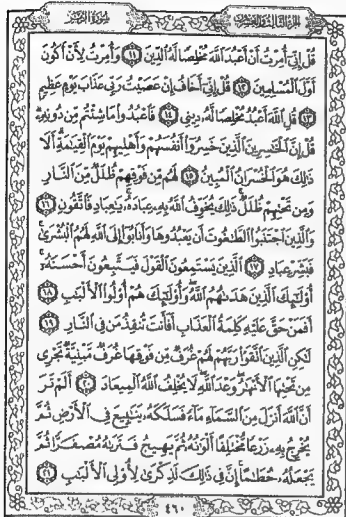 الجزء الثالث والعشرون سورة الزمر
قُلْ إِنِّىٓ أُمِرْتُ أَنْ أَعْبُدَ ٱللَّهَ مُخْلِصًا لَّهُ ٱلدِّينَ ١١ وَأُمِرْتُ لِأَنْ أَكُونَ
أَوَّلَ ٱلْمُسْلِمِينَ ١٢ قُلْ إِنِّىٓ أَخَافُ إِنْ عَصَيْتُ رَبِّى عَذَابَ يَوْمٍ عَظِيمٍ
١٣ قُلِ ٱللَّهَ أَعْبُدُ مُخْلِصًا لَّهُۥ دِينِى ١٤ فَٱعْبُدُوا۟ مَا شِئْتُم مِّن دُونِهِۦ
قُلْ إِنَّ ٱلْخَٰسِرِينَ ٱلَّذِينَ خَسِرُوٓا۟ أَنفُسَهُمْ وَأَهْلِيهِمْ يَوْمَ ٱلْقِيَٰمَةِ أَلَا
ذَٰلِكَ هُوَ ٱلْخُسْرَانُ ٱلْمُبِينُ ١٥ لَهُم مِّن فَوْقِهِمْ ظُلَلٌ مِّنَ ٱلنَّارِ
وَمِن تَحْتِهِمْ ظُلَلٌ ذَٰلِكَ يُخَوِّفُ ٱللَّهُ بِهِۦ عِبَادَهُۥ يَٰعِبَادِ فَٱتَّقُونِ ١٦
وَٱلَّذِينَ ٱجْتَنَبُوا۟ ٱلطَّٰغُوتَ أَن يَعْبُدُوهَا وَأَنَابُوٓا۟ إِلَى ٱللَّهِ لَهُمُ ٱلْبُشْرَىٰ
فَبَشِّرْ عِبَادِ ١٧ ٱلَّذِينَ يَسْتَمِعُونَ ٱلْقَوْلَ فَيَتَّبِعُونَ أَحْسَنَهُۥٓ
أُو۟لَٰٓئِكَ ٱلَّذِينَ هَدَىٰهُمُ ٱللَّهُ وَأُو۟لَٰٓئِكَ هُمْ أُو۟لُوا۟ ٱلْأَلْبَٰبِ ١٨
أَفَمَنْ حَقَّ عَلَيْهِ كَلِمَةُ ٱلْعَذَابِ أَفَأَنتَ تُنقِذُ مَن فِى ٱلنَّارِ ١٩
لَٰكِنِ ٱلَّذِينَ ٱتَّقَوْا۟ رَبَّهُمْ لَهُمْ غُرَفٌ مِّن فَوْقِهَا غُرَفٌ مَّبْنِيَّةٌ تَجْرِى
مِن تَحْتِهَا ٱلْأَنْهَٰرُ وَعْدَ ٱللَّهِ لَا يُخْلِفُ ٱللَّهُ ٱلْمِيعَادَ ٢٠ أَلَمْ تَرَ
أَنَّ ٱللَّهَ أَنزَلَ مِنَ ٱلسَّمَآءِ مَآءً فَسَلَكَهُۥ يَنَٰبِيعَ فِى ٱلْأَرْضِ ثُمَّ
يُخْرِجُ بِهِۦ زَرْعًا مُّخْتَلِفًا أَلْوَٰنُهُۥ ثُمَّ يَهِيجُ فَتَرَىٰهُ مُصْفَرًّا ثُمَّ
يَجْعَلُهُۥ حُطَٰمًا إِنَّ فِى ذَٰلِكَ لَذِكْرَىٰ لِأُو۟لِى ٱلْأَلْبَٰبِ ٢١
٤٦٠